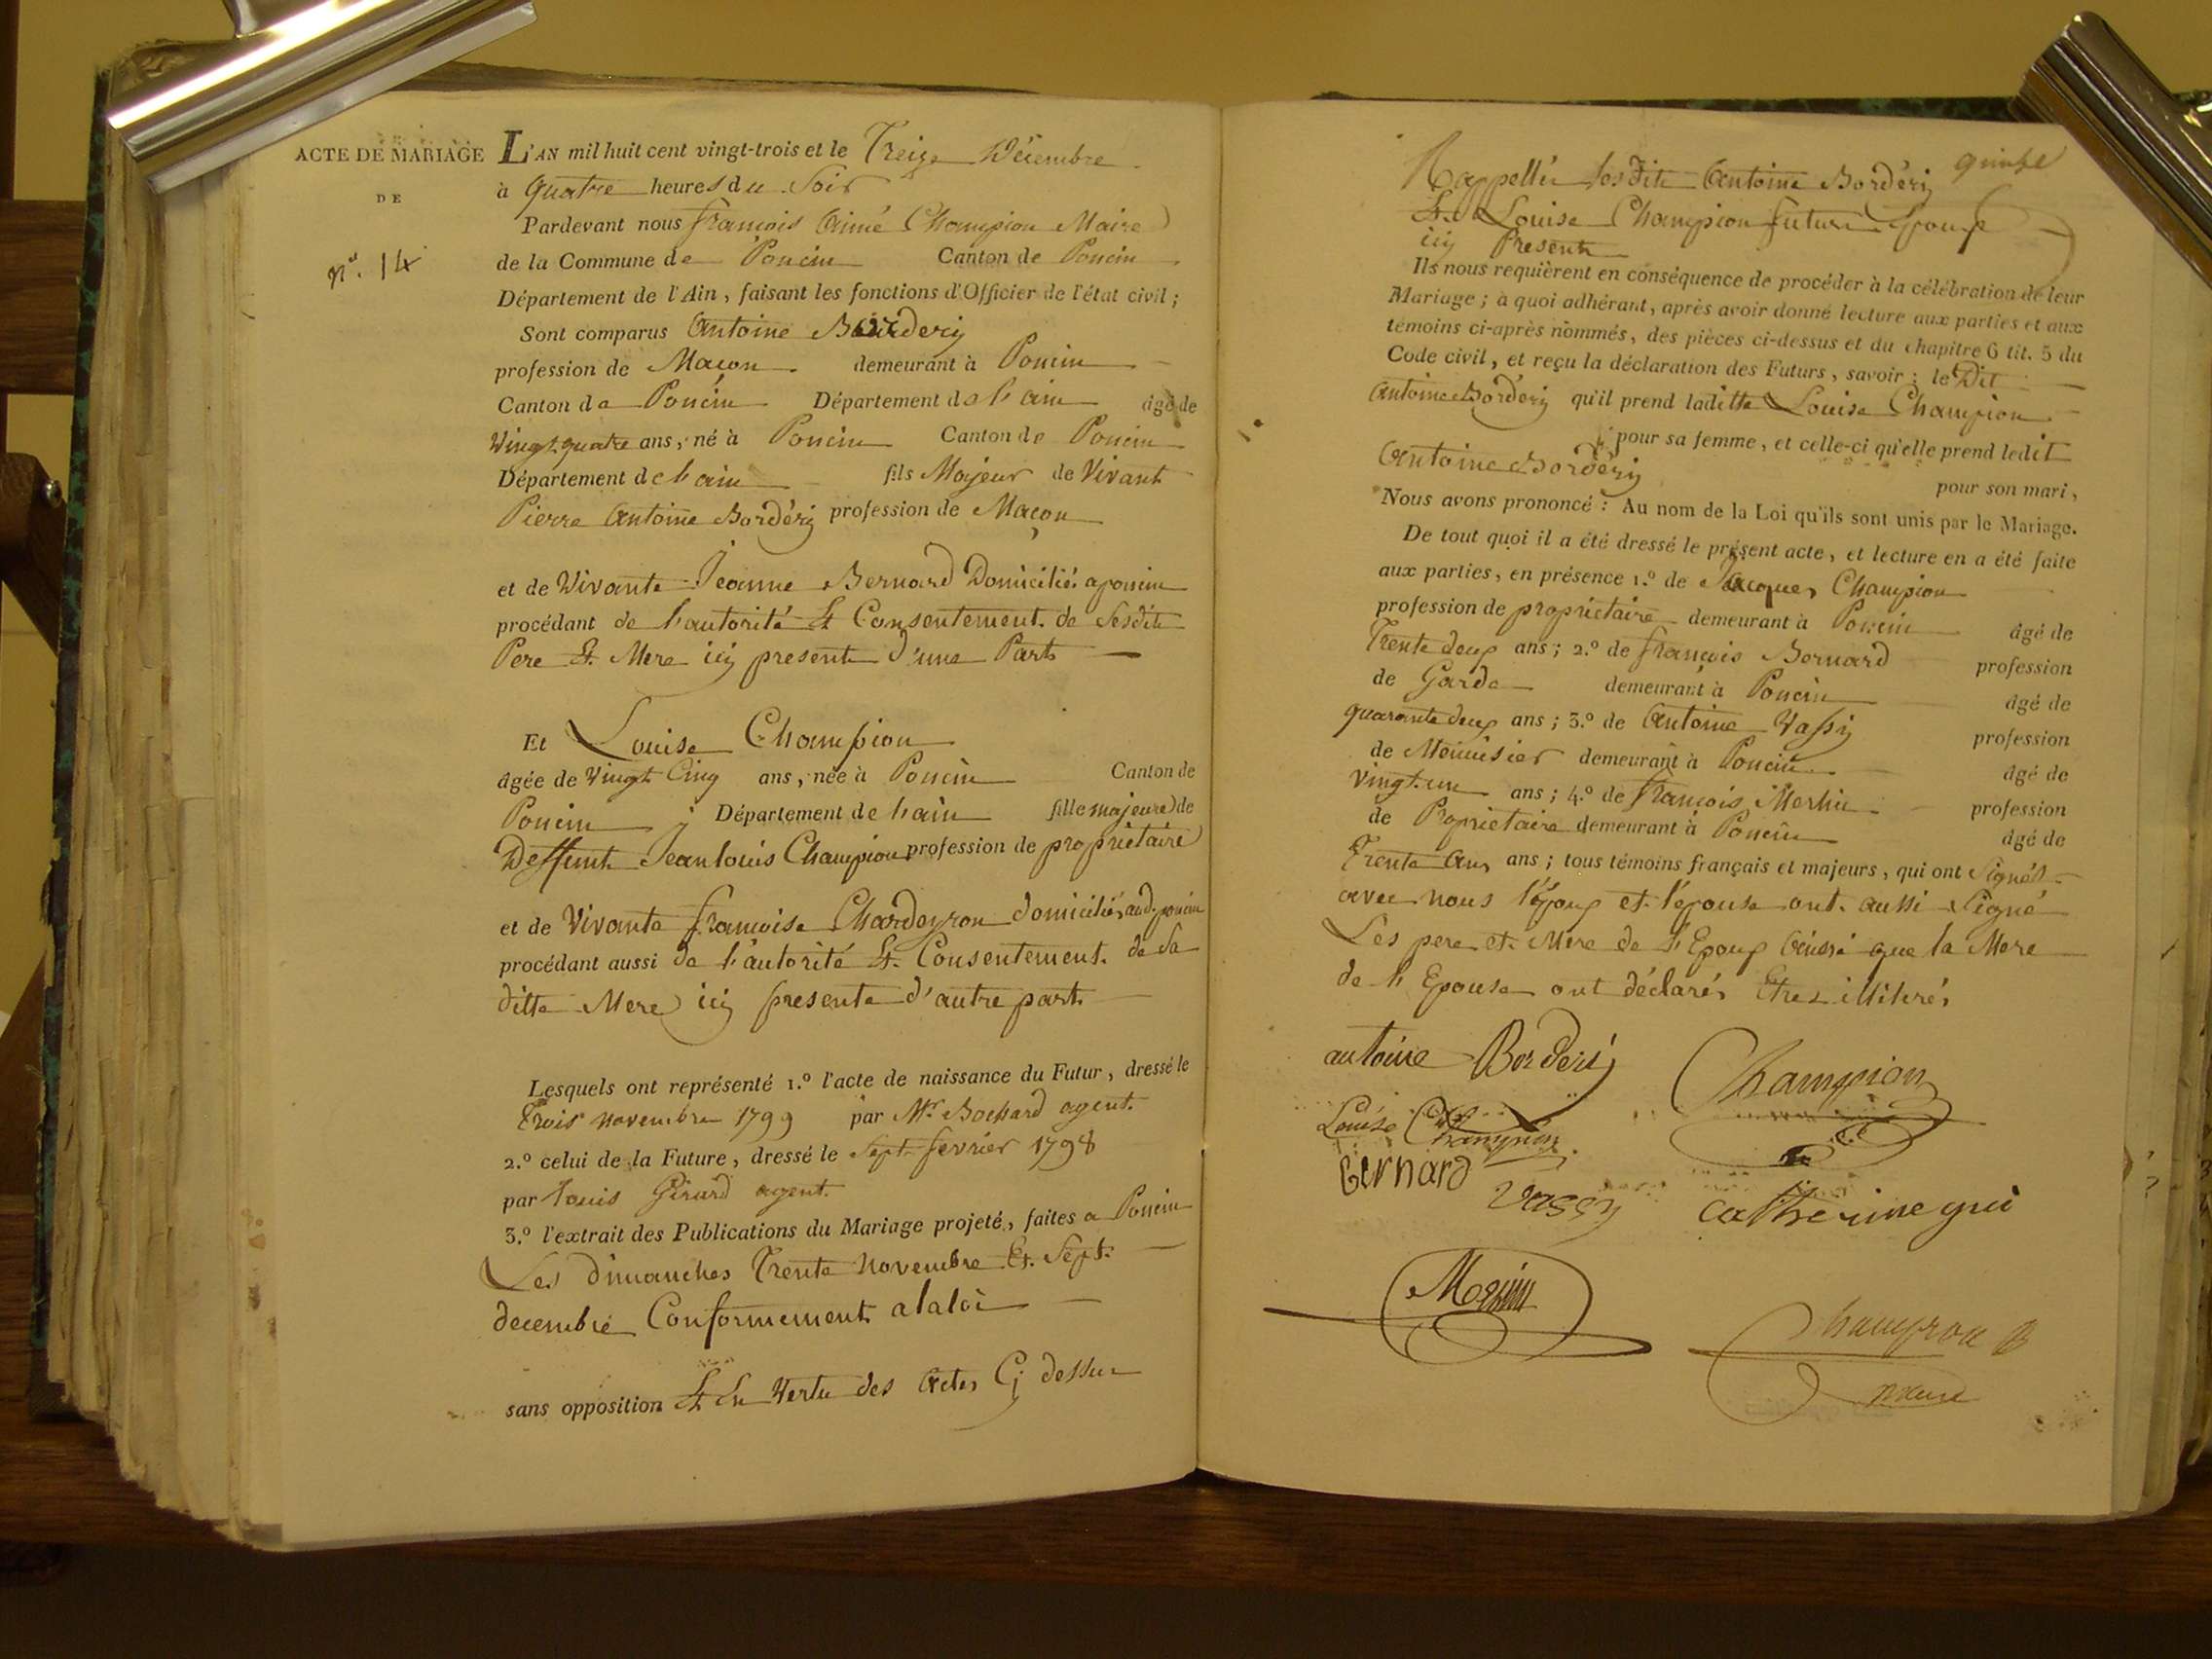 ACTE DE MARIAGE
DE
n°. 14
L'AN mil huit cent vingt-trois et le Treize Décembre
à quatre heures du Soir
Pardevant nous françois Aimé Champion Maire
de la Commune de Poncin Canton de Poncin
Département de l'Ain, faisant les fonctions d'Officier de l'état civil;
Sont comparus Antoine Borderij
profession de Macon demeurant à Poncin
Canton de Poncin Département de l'ain âgé de
Vingt quatre ans, né à Poncin Canton de Poncin
Département de l'ain fils Majeur de Vivant
Pierre Antoine Bordérij profession de Maçon
et de Vivante Jeanne Bernard Domiciliés a poncin
procédant de l'autorité Et Consentement de Sesdits
Pere Et Mere icy presents d'une Part
Et Louise Champion
âgée de Vingt Cinq ans, née à Poncin Canton de
Poncin Département de l'ain fille majeure de
Deffunt Jean louis Champion profession de propriétaire
et de Vivante françoise Chardeyron domiciliés aud. poncin
procédant aussi de l'autorité Et Consentement de Sa
ditte Mere icy presente d'autre part
Lesquels ont représenté 1.° l'acte de naissance du Futur, dressé le
Trois novembre 1799 par Mr. Bochard agent.
2.° celui de la Future, dressé le Sept fevrier 1798
par Louis Girard agent.
3.° l'extrait des Publications du Mariage projeté, faites a Poncin
Les dimanches Trente Novembre Et Sept
decembre Conformement a la loi
sans opposition Et En Vertu des Actes Cy dessus
quinze
Rappellés Lesdits Antoine Bordérij
Et Louise Champion futurs Epoux
icy Presents
Ils nous requièrent en conséquence de procéder à la célébration de leur
Mariage; à quoi adhérant, après avoir donné lecture aux parties et aux
témoins ci-après nommés, des pièces ci-dessus et du chapitre 6 tit. 5 du
Code civil, et reçu la déclaration des Futurs, savoir: le Dit
Antoine Bordérij qu'il prend laditte Louise Champion
pour sa femme, et celle-ci qu'elle prend ledit
Antoine Bordérij
pour son mari,
Nous avons prononcé: Au nom de la Loi qu'ils sont unis par le Mariage.
De tout quoi il a été dressé le présent acte, et lecture en a été faite
aux parties, en présence 1.° de Jacques Champion
profession de propriétaire demeurant à Poncin âgé de
Trente deux ans; 2.° de françois Bernard profession
de Garde demeurant à Poncin âgé de
quarante deux ans; 3.° de Antoine Vassy profession
de Menuisier demeurant à Poncin âgé de
Vingt.un ans; 4.° de françois Merlin profession
de Proprietaire demeurant à Poncin âgé de
Trente Ans ans; tous témoins français et majeurs, qui ont Signés
avec nous l'époux et l'épouse ont aussi Signé
Les pere et Mere de l'Epoux Aussi que la Mere
de l'Epouse ont déclarés Etres illitérés
antoine Borderij
Champion
Louise Champion
Bernard
Vassy
catherine gui
Merlin
Champion
maire